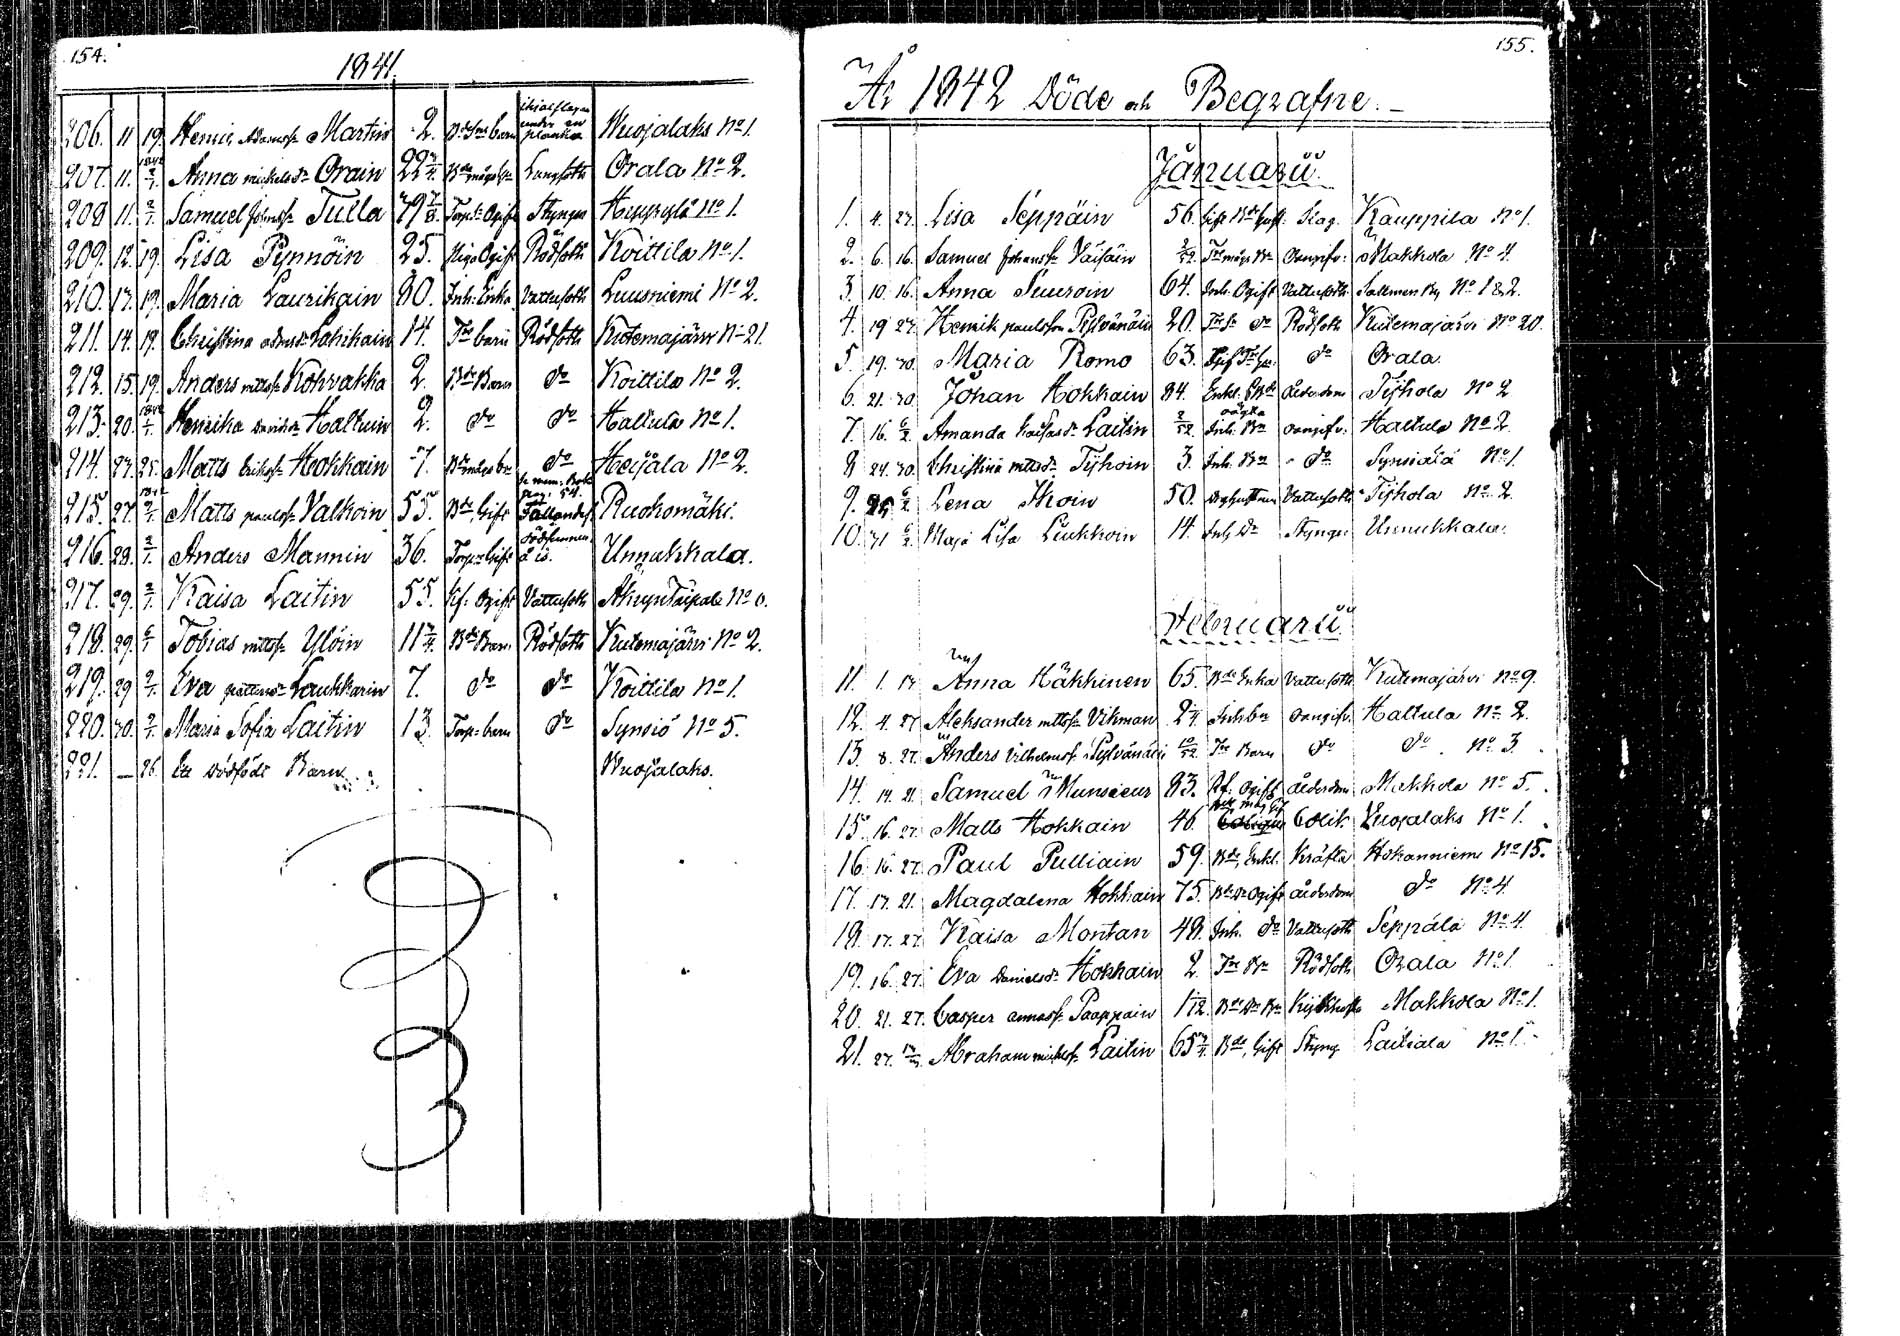 154.
1841.
206. 11 19. Henric Adamss. Martin 2. Bds barn ihjälslagen under en planka Wuojalaks No 1.
207. 11. 1842 2/1. Anna Mickelsdr Orain 22 Lungsoth Orala No 2.
208 11. 2/1. Samuel Johanss. Tulla 79 Torp. Ogift Styngn Heppylä No 1.
209. 12. 19. Lisa Pynnöin 25. Piga Ogift Rödsoth Koittila No 1.
210. 13. 19. Maria Laurikain 80. Inh: Enka Vattusoth Luusniemi No 2.
211. 14. 19. Christina Lahikain 14. Trs barn Rödsoth Kutemajärvi No 21.
212. 15. 19. Anders mattss. Kohvakka 2. Bds Barn do Koittila No 2.
213. 20. 1842 2/1. Henrika Davidsdr Haltuin 2. do do Hallula No 1.
214. 27. 25. Matts Erikss. Hokkain 7. do Heijala No 2.
215. 27. 1842 2/1. Matts paulss. Valkoin 55. Bde, Gift Fallandes. Ruokomäki.
216. 28. 2/1. Anders Mannin 36. Torp. Gift dödfunnen å is. Unnukkala.
217. 29. 2/1. Kaisa Laitin 55. Kf: Ogift Vattusoth Ahvyntaipale No 6.
218. 29. 6/1 Tobias mattss. Ylöin 11 Bds Barn Rödsoth Kutemajärvi No 2.
219. 29 2/1. Eva Laukkarin 7. do do Koittila No 1.
220. 30. 2/1. Maria Sofia Laitin 13. Torp. barn do Synsiö No 5.
221. — 26. Ett Dödfödt Barn Wuojalaks.
155.
År 1842 Döde och Begrafne. –
Januarii.
1. 4. 27. Lisa Seppäin 56. Slag. Kauppila No 1.
2. 6. 16. Samuel Johanss. Väisäin 2/52 Oangifv: Makkola No 4.
3. 10. 16. Anna Suuroin 64. Inh. Ogift Vattusoth. No 1 & 2.
4. 19 27. Henrik paulsson Pylvänäin 20. Trs S. do Rödsoth Kutemajärvi No 20.
5. 19. 30. Maria Romo 63. do Orala.
6. 21. 30 Johan Hokkain 84. Enkl. ålderdom Tyhola No 2
7. 16. 6/2. Amanda Kaisasdr Laitin 2/52 oägta Inh: Bn oangifv: Hallula No 2.
8 24. 30. Christina mattsdr Tyhoin 3. Inh. Bn do Synsiälä No 1.
9. 25 6/2. Lena Ihoin 50. Vattusoth. Tyhola No 2.
10. 31 6/2. Maja Lisa Liukkoin 14. Inh Dr Styngn Unnukkala.
Februarii.
11. 1. 13 Anna Häkkinen 65. Bds Enka Vattusoth Kutemajärvi No 9.
12. 4. 27 Aleksander mattss. Vikman Inh bn oangifv. Hallula No 2.
13. 8. 27. Anders Vilhelmss. Pylvänäin 10/52 Trs Barn do do. No 3.
14. 14. 21. Samuel Munsieur 83. Kf: Ogift ålderdom Makkola No 5.
15. 16. 27. Matts Hokkain 46. Colik. Vuojalaks No 1.
16 16. 27. Paul Pulliain 59. Bde, Enkl. Kräfta Hokanniemi No 15.
17. 17. 21. Magdalena Hokkain 75. Bds Dr Ogift ålderdom do No 4.
18. 17. 27. Kaisa Montan 48. Inh. do Vattusoth Seppälä No 4.
19. 16. 27. Eva Danielsdr Hokkain 2. Trs Bn Rödsoth Orala No 1.
20. 21. 27. Casper annass. Paappain 1/12. Bds Dr Bn Kikhosta Makkola No 1.
21. 27. Abraham mickelss. Laitin 65 Bde, Gift Styng Laitiala No 1.